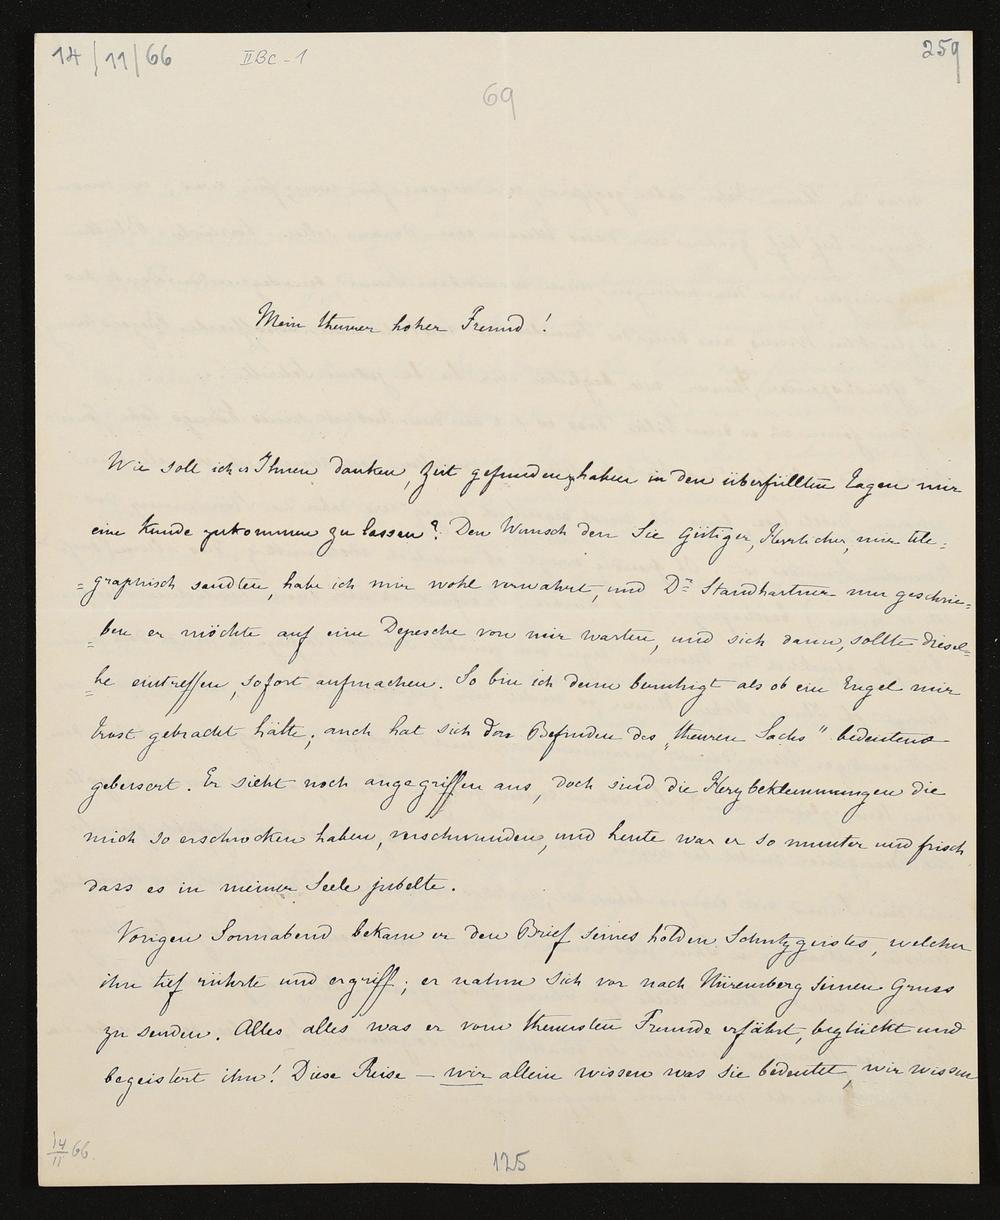 14/11/66
IIBc-1
259
69
Mein theurer hoher Freund!
Wie soll ich es Ihnen danken, Zeit gefunden zu haben in den überfüllten Tagen mir
eine Kunde zukommen zu lassen? Den Wunsch den Sie Gütiger, Herrlicher, mir tele=
=graphisch sandten, habe ich mir wohl verwahrt, und Dr Standhartner nur geschrie=
=ben er möchte auf eine Depesche von mir warten, und sich dann, sollte diesel=
=be eintreffen, sofort aufmachen. So bin ich denn beruhigt als ob ein Engel mir
Trost gebracht hätte; auch hat sich das Befinden des „theuren Sachs" bedeutend
gebessert. Er sieht noch angegriffen aus, doch sind die Herzbeklemmungen die
mich so erschrocken haben, verschwunden, und heute war er so munter und frisch
dass es in meiner Seele jubelte.
Vorigen Sonnabend bekam er den Brief seines holden Schutzgeistes, welcher
ihn tief rührte und ergriff; er nahm sich vor nach Nüremberg seinen Gruss
zu senden. Alles alles was er vom theuersten Freunde erfährt, beglückt und
begeistert ihn! Diese Reise — wir allein wissen was sie bedeutet, wir wissen
14/11 66.
125